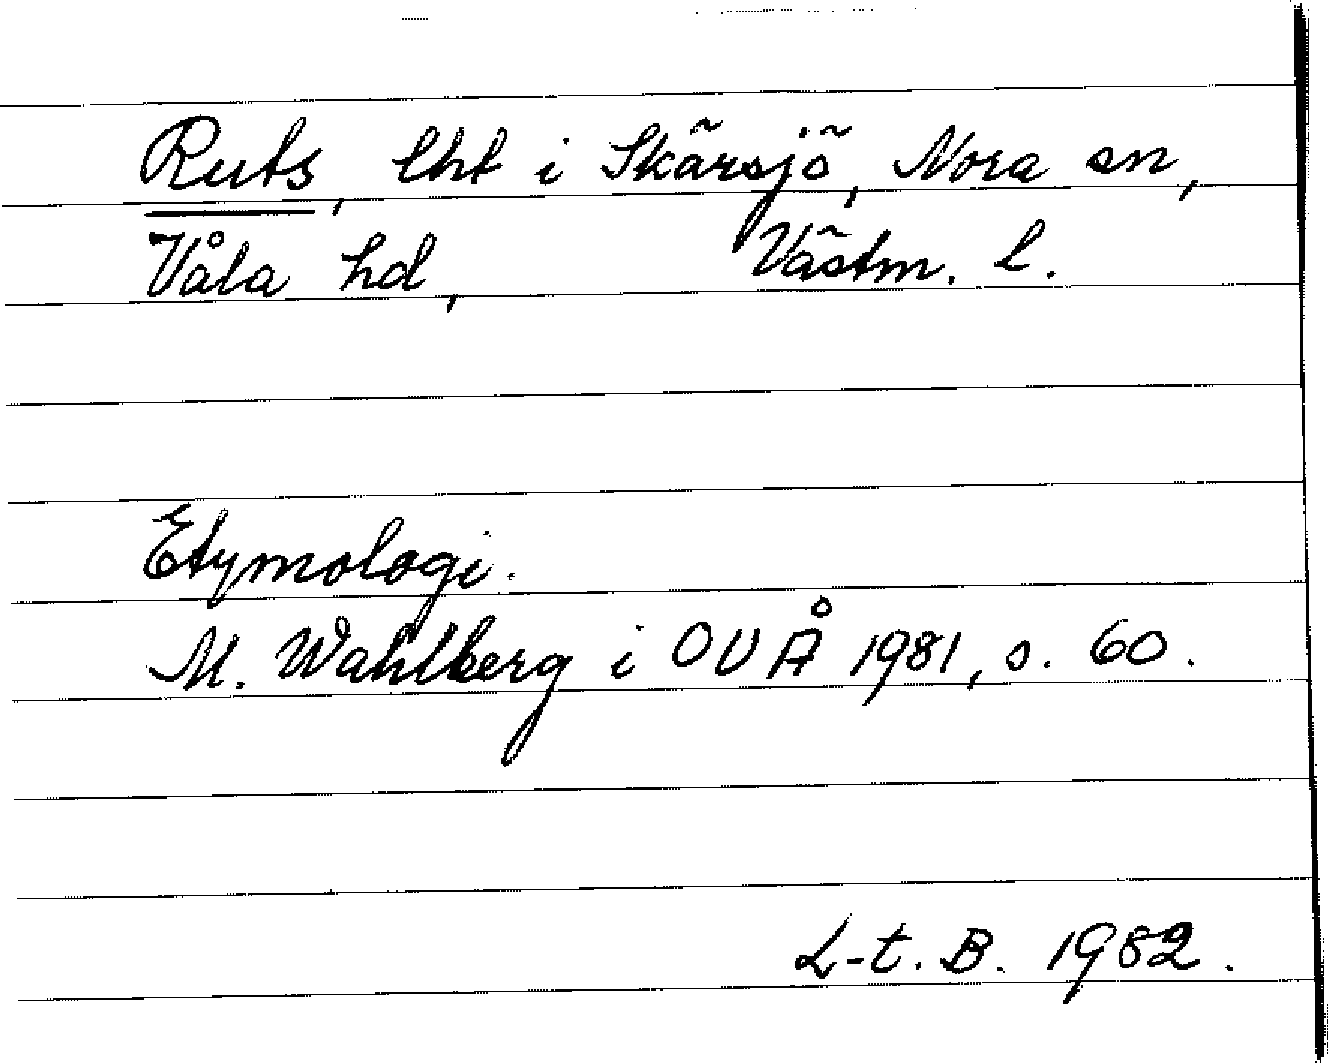 Ruts, lht i Skärsjö, Nora sn,
Våla hd, Västm. l.
Etymologi.
M. Wahlberg i OUÅ 1981, s. 60.
L-t. B. 1982.